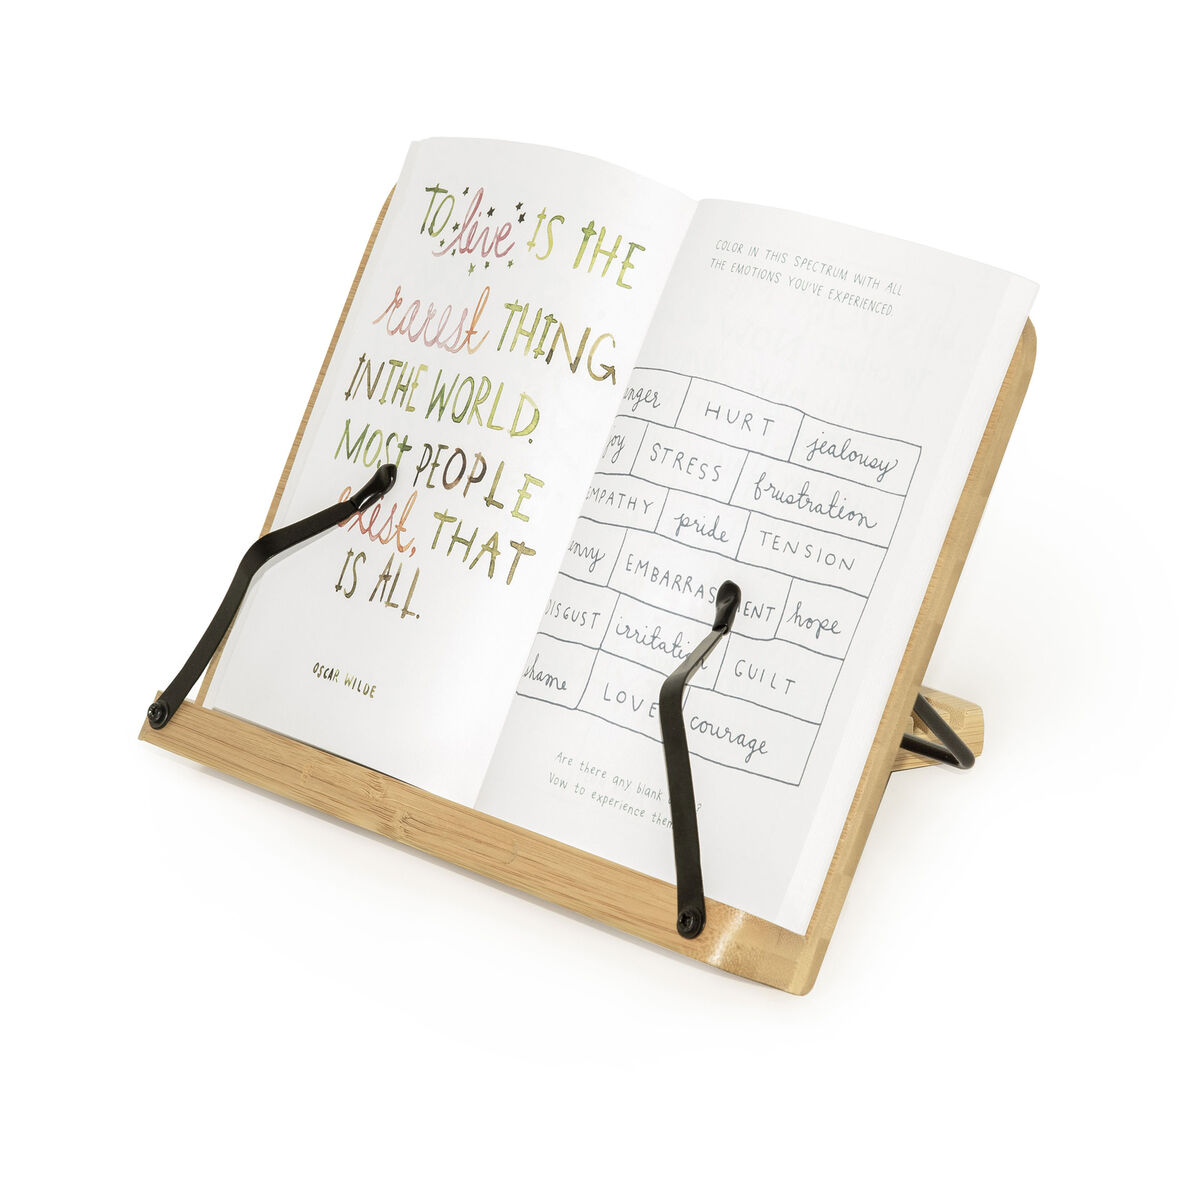 TO live IS THE
rarest THING
IN THE WORLD.
MOST PEOPLE
exist, THAT
IS ALL.
OSCAR WILDE
COLOR IN THIS SPECTRUM WITH ALL
THE EMOTIONS YOU'VE EXPERIENCED.
anger HURT jealousy
joy STRESS frustration
EMPATHY pride TENSION
envy EMBARRASSMENT hope
DISGUST irritation GUILT
shame LOVE courage
Are there any blank
Vow to experience them